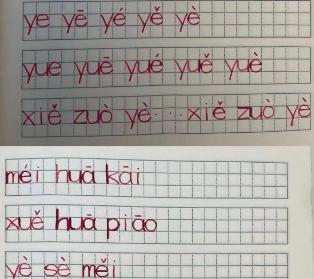 ye yē yé yě yè
yue yuē yué yuě yuè
xiě zuò yè··· xiě zuò yè
méi huā kāi
xuě huā piāo
yè sè měi